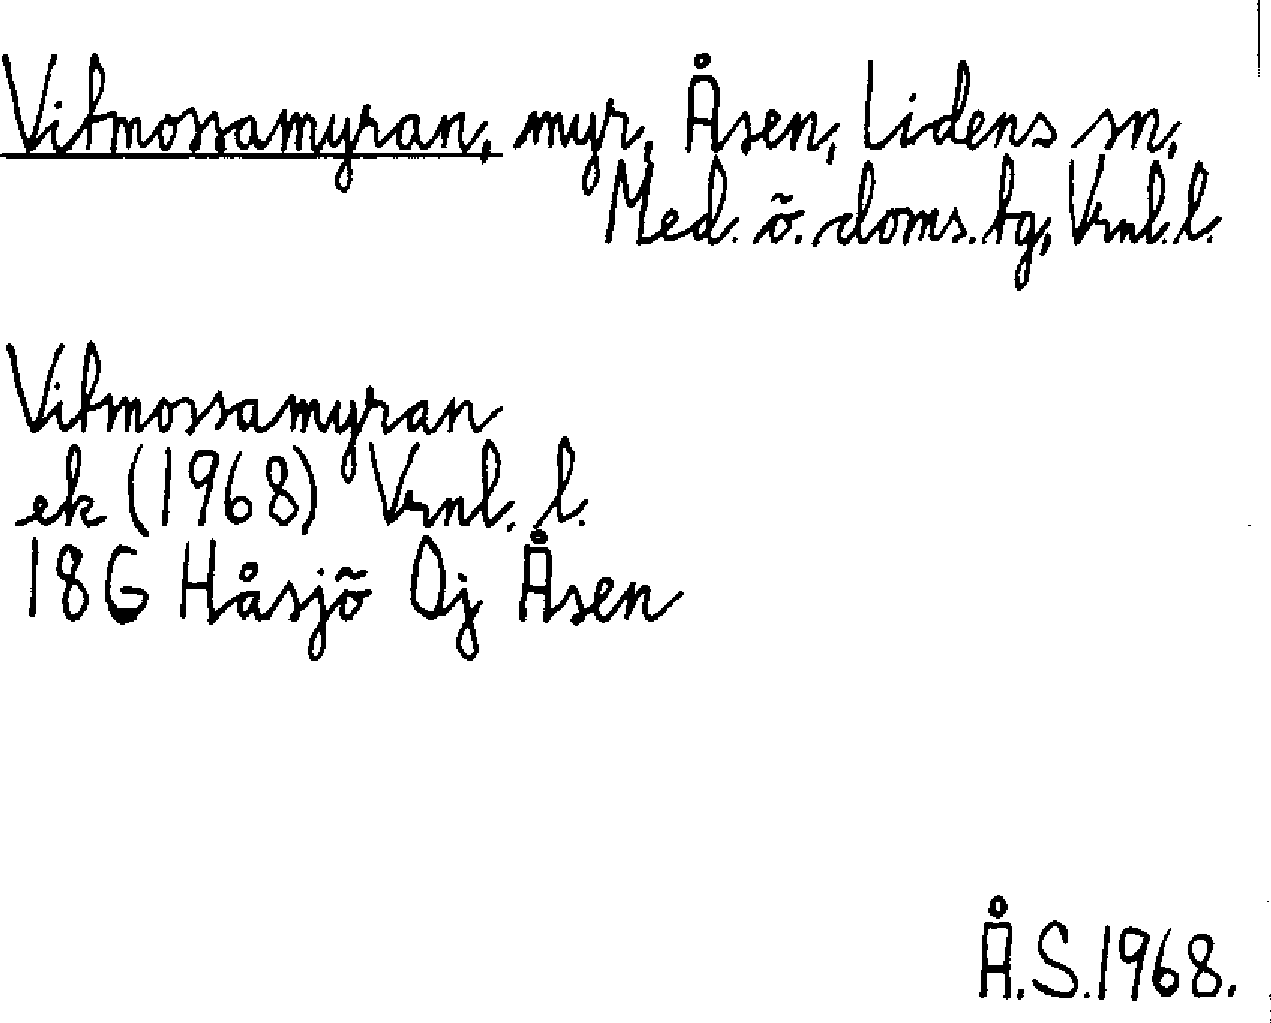 Vitmossamyran, myr, Åsen, Lidens sn,
Med. ö. doms. tg, Vrnl. l.
Vitmossamyran
ek (1968) Vrnl. l.
18G Håsjö Oj Åsen
Å.S.1968.